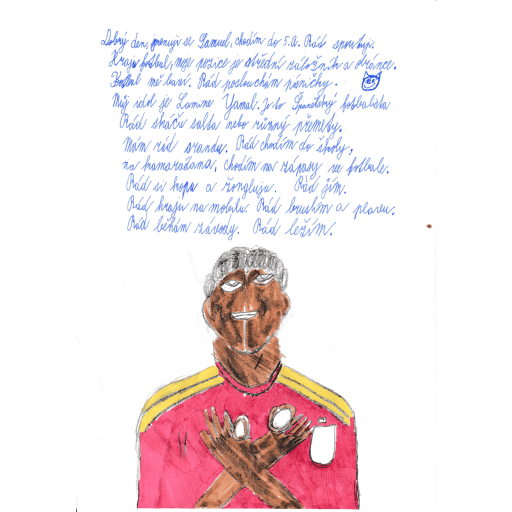 Dobrý den, jmenuji se Samuel, chodím do 5.A. Rád sportuji.
Hraju fotbal, moje pozice je střední záložník a obránce.
Fotbal mě baví. Rád poslouchám písničky.
Můj idol je Lamine Yamal. Je to Španělský fotbalista
Rád skáču salta nebo různý přemety.
Mám rád srandu. Rád chodím do školy,
na kamaráďama, chodím na zápasy ve fotbale.
Rád si kopu a žongluju. Rád jím.
Rád hraju na mobilu. Rád bruslím a plavu.
Rád běhám závody. Rád ležím.